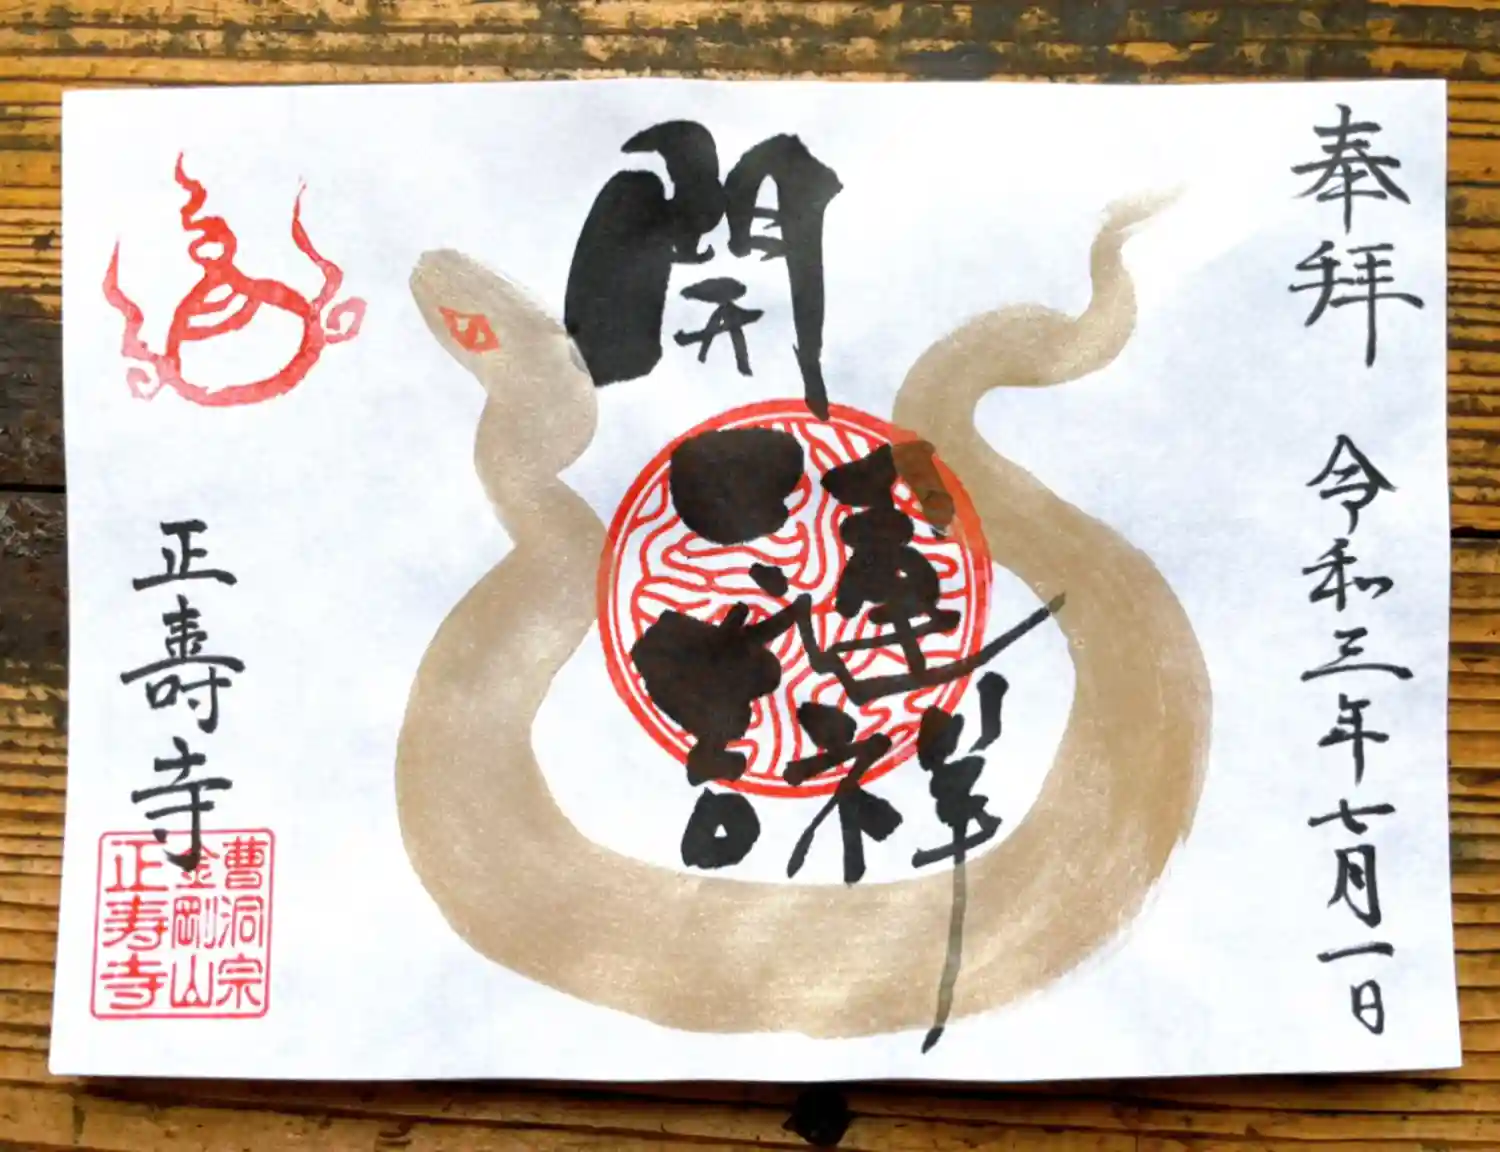 奉拜
令和三年七月一日
開運
吉祥
正壽寺
曹洞宗
金剛山
正寿寺